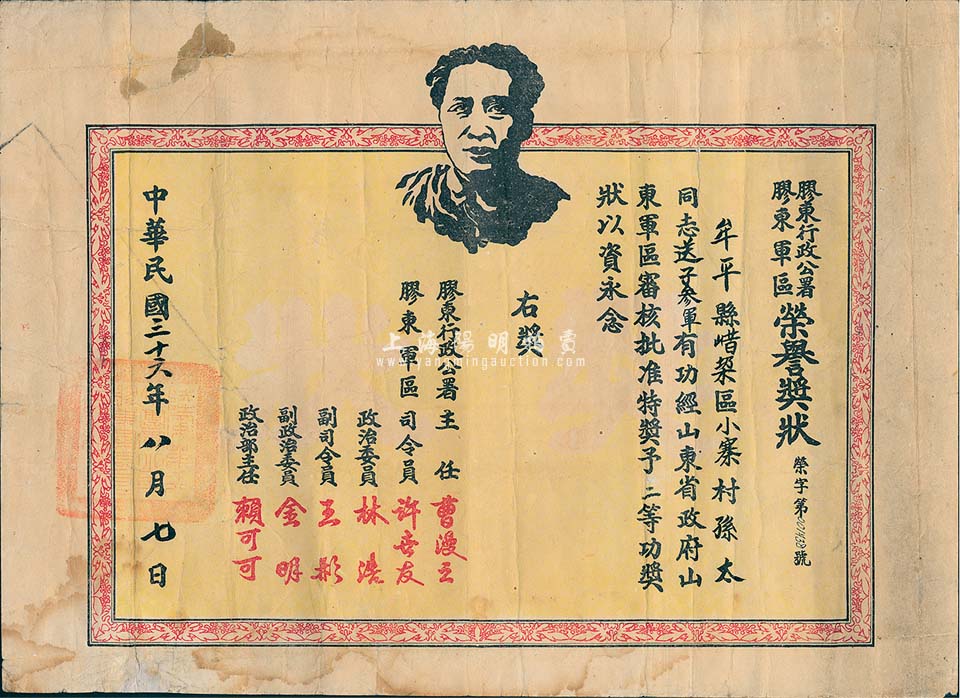 膠東行政公署
膠東軍區
榮譽獎狀
榮字第 號
牟平縣 區小寨村孫太
同志送子參軍有功經山東省政府山
東軍區審核批准特獎予二等功獎
狀以資永念
右獎
膠東行政公署主任 曹漫之
膠東軍區司令員 許世友
政治委員 林浩
副司令員 王彬
副政治委員 金明
政治部主任 賴可可
中華民國三十六年八月七日
上海陽明拍賣
www.yangmingauction.com